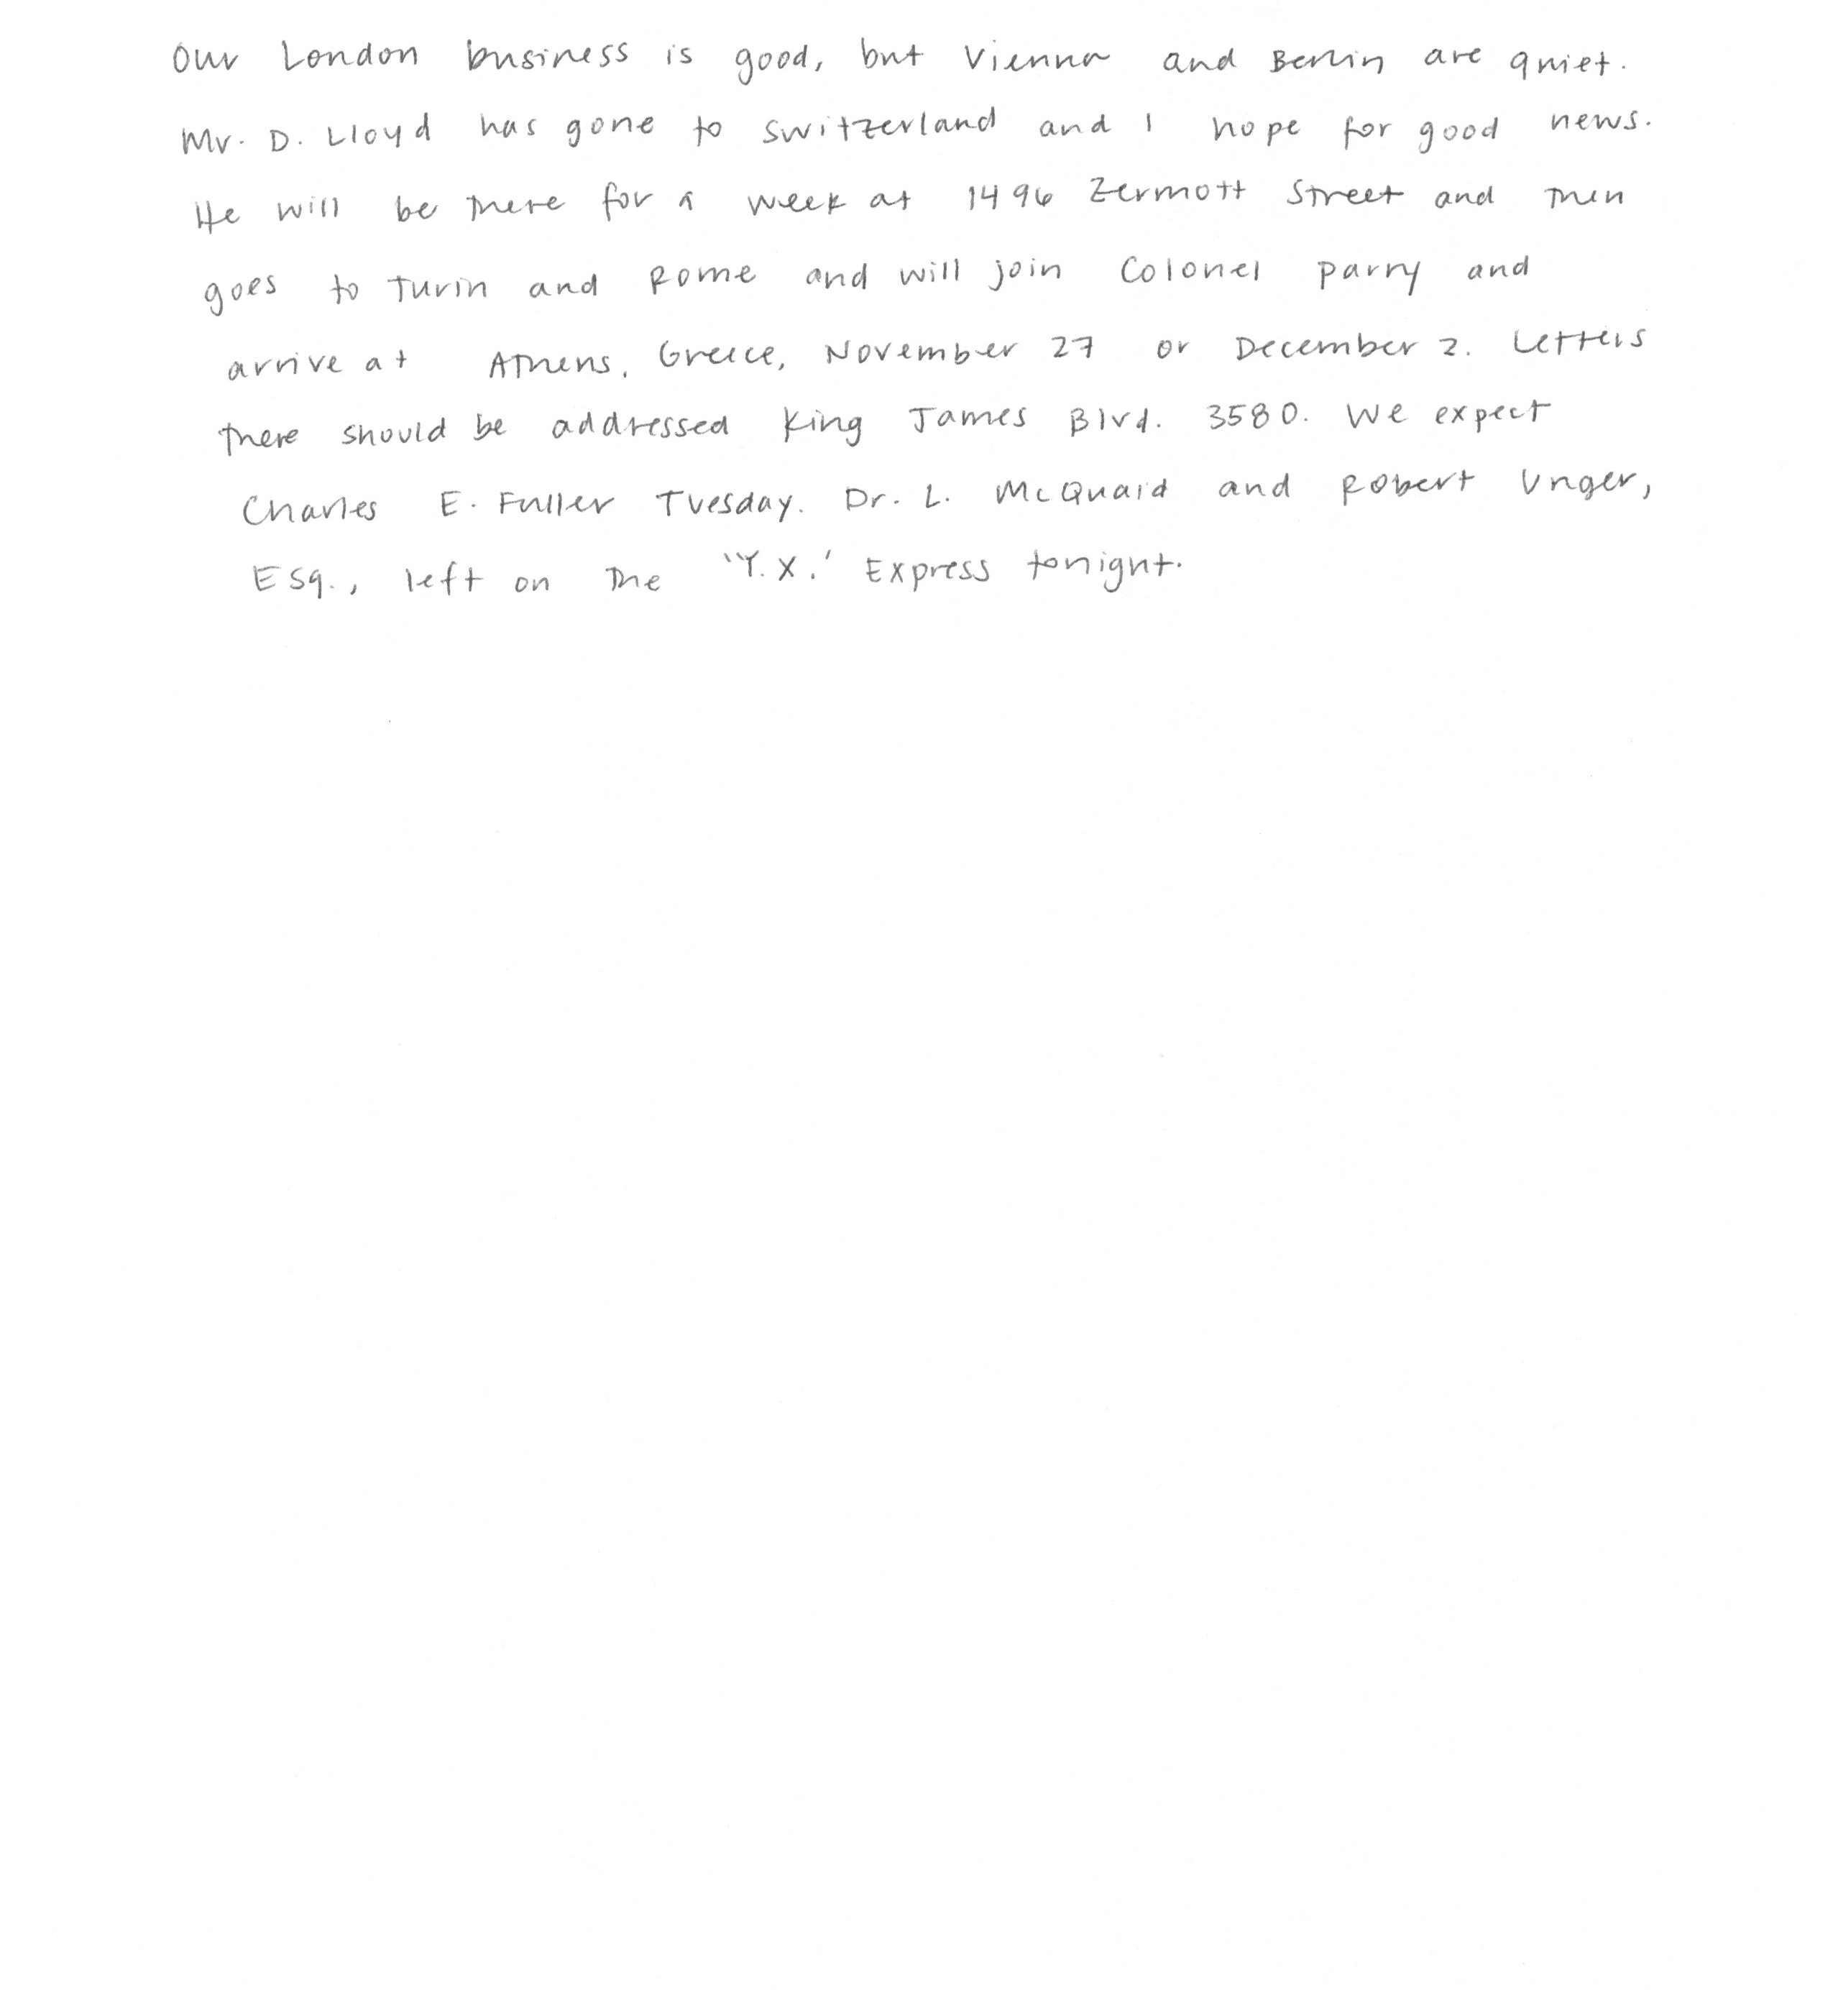 Our London business is good, but Vienna and Berlin are quiet.
Mr. D. Lloyd has gone to Switzerland and I hope for good news.
He will be there for a week at 1496 Zermott Street and then
goes to Turin and Rome and will join Colonel Parry and
arrive at Athens, Greece, November 27 or December 2. Letters
there should be addressed King James Blvd. 3580. We expect
Charles E. Fuller Tuesday. Dr. L. McQuaid and Robert Unger,
Esq., left on the "Y.X.' Express tonight.